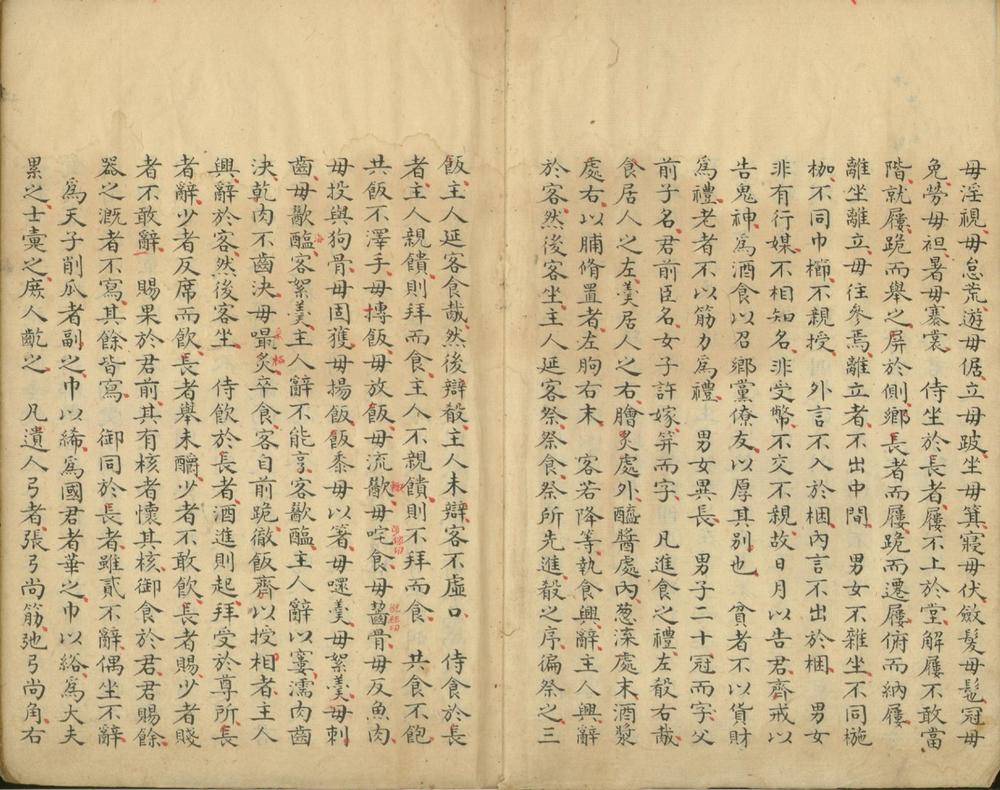 毋淫視毋怠荒遊毋倨立毋跛坐毋箕寢毋伏斂髮毋髢冠毋
免勞毋袒暑毋褰裳　侍坐於長者屨不上於堂解屨不敢當
階就屨跪而舉之屏於側鄉長者而屨跪而遷屨俯而納屨
離坐離立毋往參焉離立者不出中間　男女不雜坐不同椸
枷不同巾櫛不親授　外言不入於梱內言不出於梱　男女
非有行媒不相知名非受幣不交不親故日月以告君齊戒以
告鬼神為酒食以召鄉黨僚友以厚其別也　貧者不以貨財
為禮老者不以筋力為禮　男女異長　男子二十冠而字父
前子名君前臣名女子許嫁笄而字　凡進食之禮左殽右胾
食居人之左羹居人之右膾炙處外醯醬處內葱渫處末酒漿
處右以脯脩置者左朐右末　客若降等執食興辭主人興辭
於客然後客坐主人延客祭祭食祭所先進殽之序徧祭之三
飯主人延客食胾然後辯殽主人未辯客不虛口　侍食於長
者主人親饋則拜而食主人不親饋則不拜而食　共食不飽
共飯不澤手毋摶飯毋放飯毋流歠毋咤食毋齧骨毋反魚肉
毋投與狗骨毋固獲毋揚飯飯黍毋以箸毋嚃羹毋絮羹毋刺
齒毋歠醢客絮羹主人辭不能亨客歠醢主人辭以窶濡肉齒
決乾肉不齒決毋嘬炙卒食客自前跪徹飯齊以授相者主人
興辭於客然後客坐　侍飲於長者酒進則起拜受於尊所長
者辭少者反席而飲長者舉未釂少者不敢飲長者賜少者賤
者不敢辭　賜果於君前其有核者懷其核御食於君君賜餘
器之溉者不寫其餘皆寫　御同於長者雖貳不辭偶坐不辭
為天子削瓜者副之巾以絺為國君者華之巾以綌為大夫
累之士疐之庶人齕之　凡遺人弓者張弓尚筋弛弓尚角右